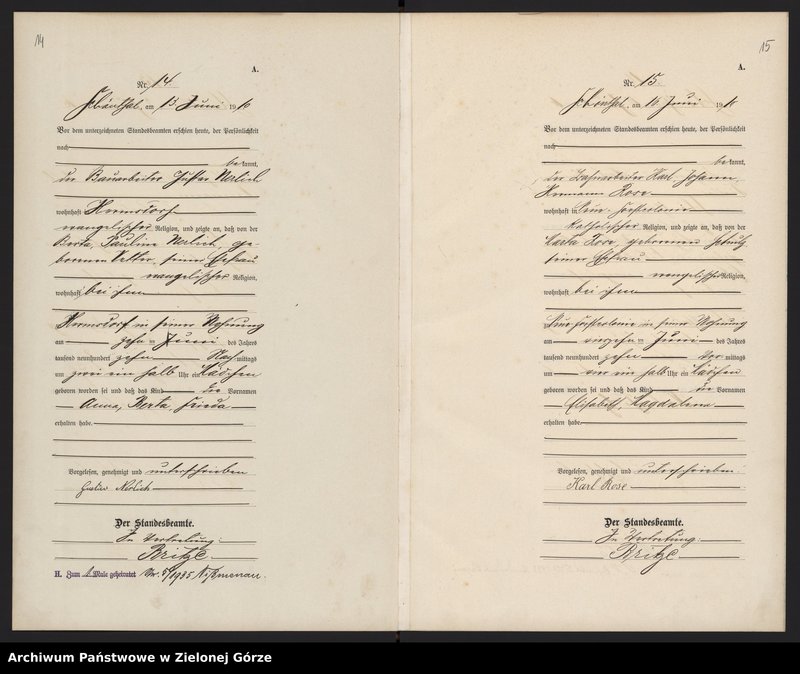 14
A.
Nr. 14.
am 13 Juni 1910
Vor dem unterzeichneten Standesbeamten erschien heute, der Persönlichkeit
nach
bekannt,
der Bauarbeiter Gustav Nerlich
wohnhaft Hermsdorf
evangelischer Religion, und zeigte an, daß von der
Berta, Pauline Nerlich, ge-
borenen Vetter, seiner Ehefrau
evangelischer Religion,
wohnhaft bei ihm
Hermsdorf in seiner Wohnung
am zehn ten Juni des Jahres
tausend neunhundert zehn Nachmittags
um zwei ein halb Uhr ein Mädchen
geboren worden sei und daß das Kind die Vornamen
Anna, Berta, Frieda
erhalten habe.
Vorgelesen, genehmigt und unterschrieben
Gustav Nerlich
Der Standesbeamte.
In Vertretung:
Britze
H. Zum 1. Male geheiratet Nr. 5/1935
15
A.
Nr. 15.
am Juni 1910
Vor dem unterzeichneten Standesbeamten erschien heute, der Persönlichkeit
nach
bekannt,
der Bahnarbeiter Karl Johann
Hermann Rose
wohnhaft in
katholischer Religion, und zeigte an, daß von der
Rose, geborenen
seiner Ehefrau
evangelischer Religion,
wohnhaft bei ihm
in seiner Wohnung
am vierzehn ten Juni des Jahres
tausend neunhundert zehn Vormittags
um vier ein halb Uhr ein Mädchen
geboren worden sei und daß das Kind die Vornamen
Elisabeth, Magdalena
erhalten habe.
Vorgelesen, genehmigt und unterschrieben.
Karl Rose
Der Standesbeamte.
In Vertretung:
Britze
Archiwum Państwowe w Zielonej Górze